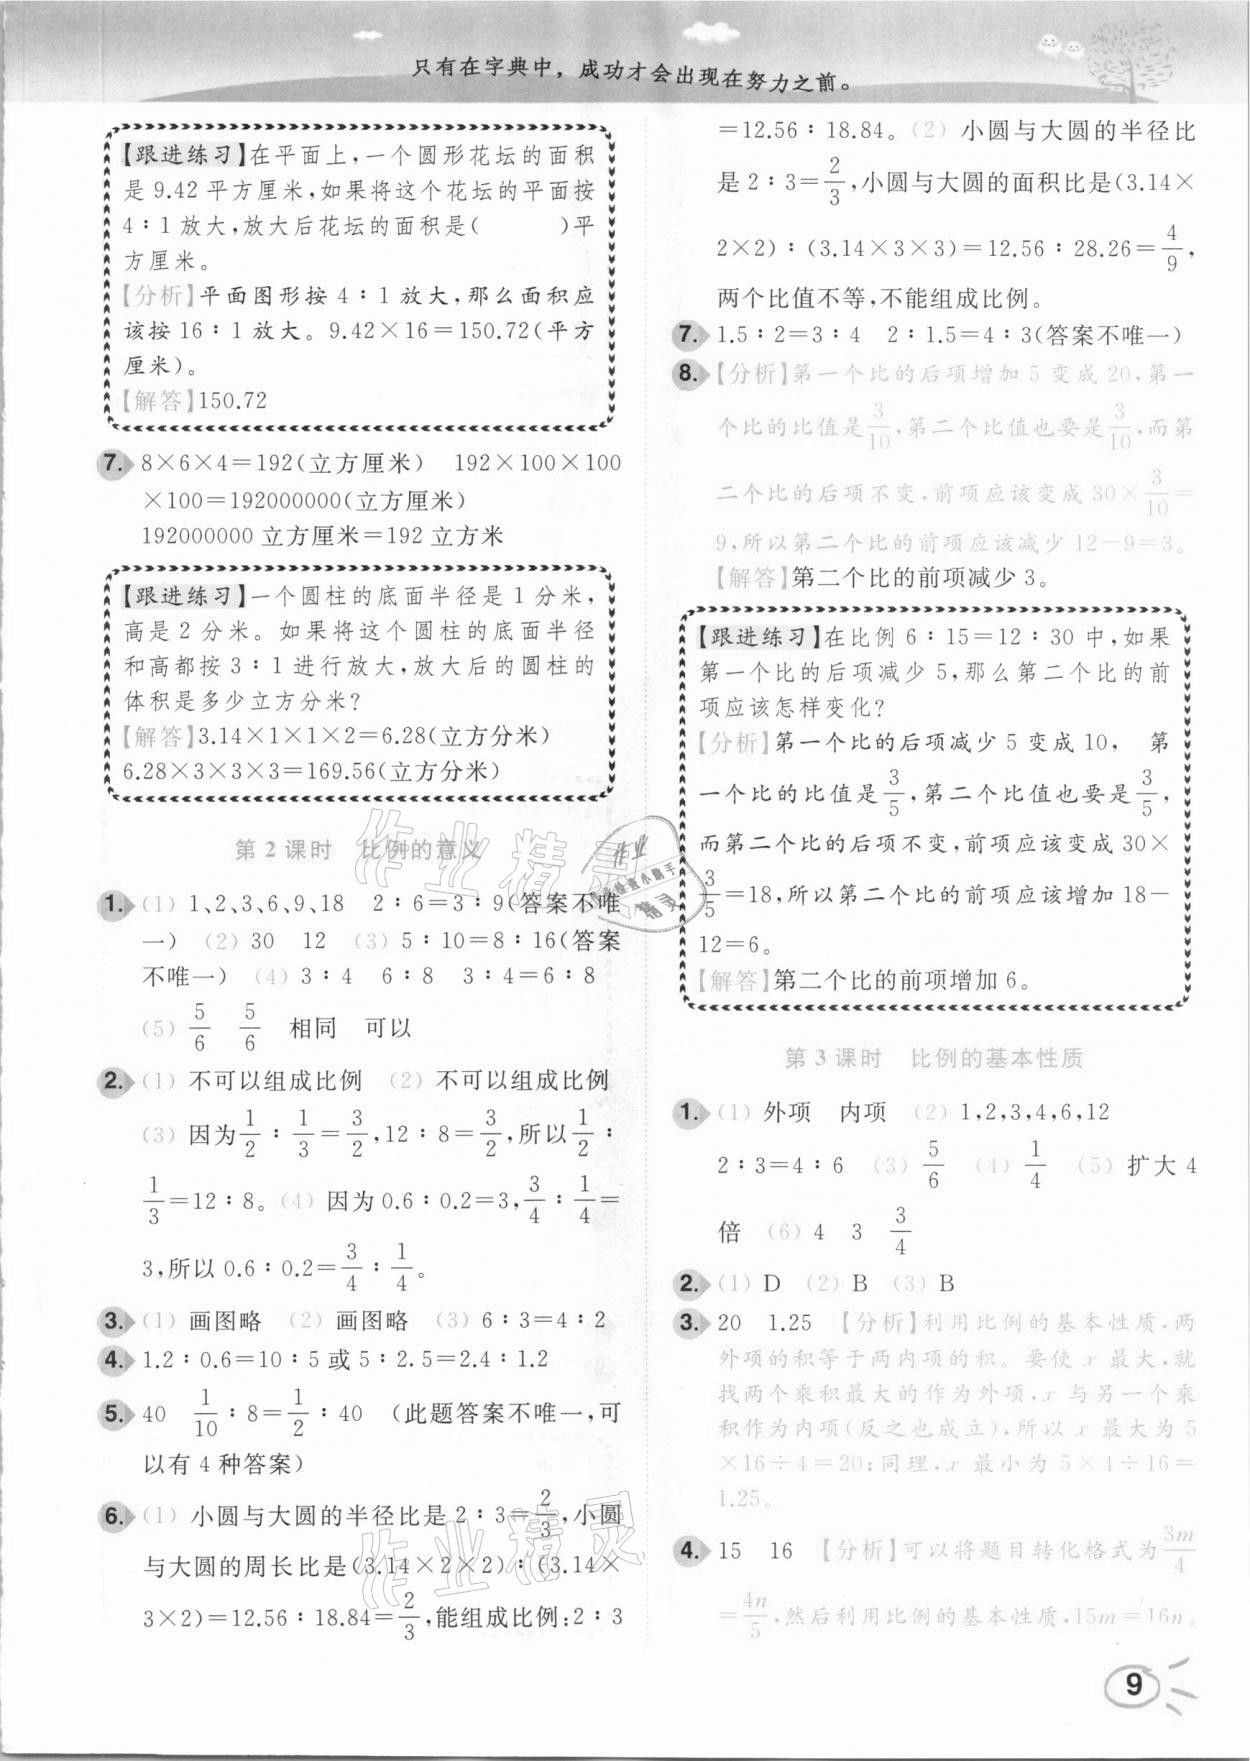 只有在字典中，成功才会出现在努力之前。
【跟进练习】在平面上,一个圆形花坛的面积
是 9.42 平方厘米,如果将这个花坛的平面按
4∶1 放大,放大后花坛的面积是(　　)平
方厘米。
【分析】平面图形按 4∶1 放大,那么面积应
该按 16∶1 放大。9.42×16＝150.72(平方
厘米)。
【解答】150.72
7. 8×6×4＝192(立方厘米)　192×100×100
×100＝192000000(立方厘米)
192000000 立方厘米＝192 立方米
【跟进练习】一个圆柱的底面半径是 1 分米,
高是 2 分米。如果将这个圆柱的底面半径
和高都按 3∶1 进行放大,放大后的圆柱的
体积是多少立方分米?
【解答】3.14×1×1×2＝6.28(立方分米)
6.28×3×3×3＝169.56(立方分米)
第 2 课时　比例的意义
1. (1) 1、2、3、6、9、18　2∶6＝3∶9(答案不唯
一)　(2) 30　12　(3) 5∶10＝8∶16(答案
不唯一)　(4) 3∶4　6∶8　3∶4＝6∶8
(5) 5/6　5/6　相同　可以
2. (1) 不可以组成比例　(2) 不可以组成比例
(3) 因为1/2∶1/3＝3/2,12∶8＝3/2,所以1/2∶
1/3＝12∶8。(4) 因为0.6∶0.2＝3,3/4∶1/4＝
3,所以 0.6∶0.2＝3/4∶1/4。
3. (1) 画图略　(2) 画图略　(3) 6∶3＝4∶2
4. 1.2∶0.6＝10∶5 或 5∶2.5＝2.4∶1.2
5. 40　1/10∶8＝1/2∶40　(此题答案不唯一,可
以有 4 种答案)
6. (1) 小圆与大圆的半径比是 2∶3＝2/3,小圆
与大圆的周长比是(3.14×2×2)∶(3.14×
3×2)＝12.56∶18.84＝2/3,能组成比例:2∶3
＝12.56∶18.84。(2) 小圆与大圆的半径比
是 2∶3＝2/3,小圆与大圆的面积比是(3.14×
2×2)∶(3.14×3×3)＝12.56∶28.26＝4/9,
两个比值不等,不能组成比例。
7. 1.5∶2＝3∶4　2∶1.5＝4∶3(答案不唯一)
8. 【分析】第一个比的后项增加 5 变成 20,第一
个比的比值是3/10,第二个比值也要是3/10,而第
二个比的后项不变,前项应该变成 30×3/10＝
9,所以第二个比的前项应该减少 12－9＝3。
【解答】第二个比的前项减少 3。
【跟进练习】在比例 6∶15＝12∶30 中,如果
第一个比的后项减少 5,那么第二个比的前
项应该怎样变化?
【分析】第一个比的后项减少 5 变成 10,　第
一个比的比值是3/5,第二个比值也要是3/5,
而第二个比的后项不变,前项应该变成 30×
3/5＝18,所以第二个比的前项应该增加 18－
12＝6。
【解答】第二个比的前项增加 6。
第 3 课时　比例的基本性质
1. (1) 外项　内项　(2) 1,2,3,4,6,12
2∶3＝4∶6　(3) 5/6　(4) 1/4　(5) 扩大 4
倍　(6) 4　3　3/4
2. (1) D　(2) B　(3) B
3. 20　1.25　【分析】利用比例的基本性质,两
外项的积等于两内项的积。要使 x 最大,就
找两个乘积最大的作为外项,x 与另一个乘
积作为内项(反之也成立),所以 x 最大为 5
×16÷4＝20;同理,x 最小为 5×4÷16＝
1.25。
4. 15　16　【分析】可以将题目转化格式为3m/4
＝4n/5,然后利用比例的基本性质,15m＝16n。
9
作业精灵
作业精灵
作业
检查小助手
精灵